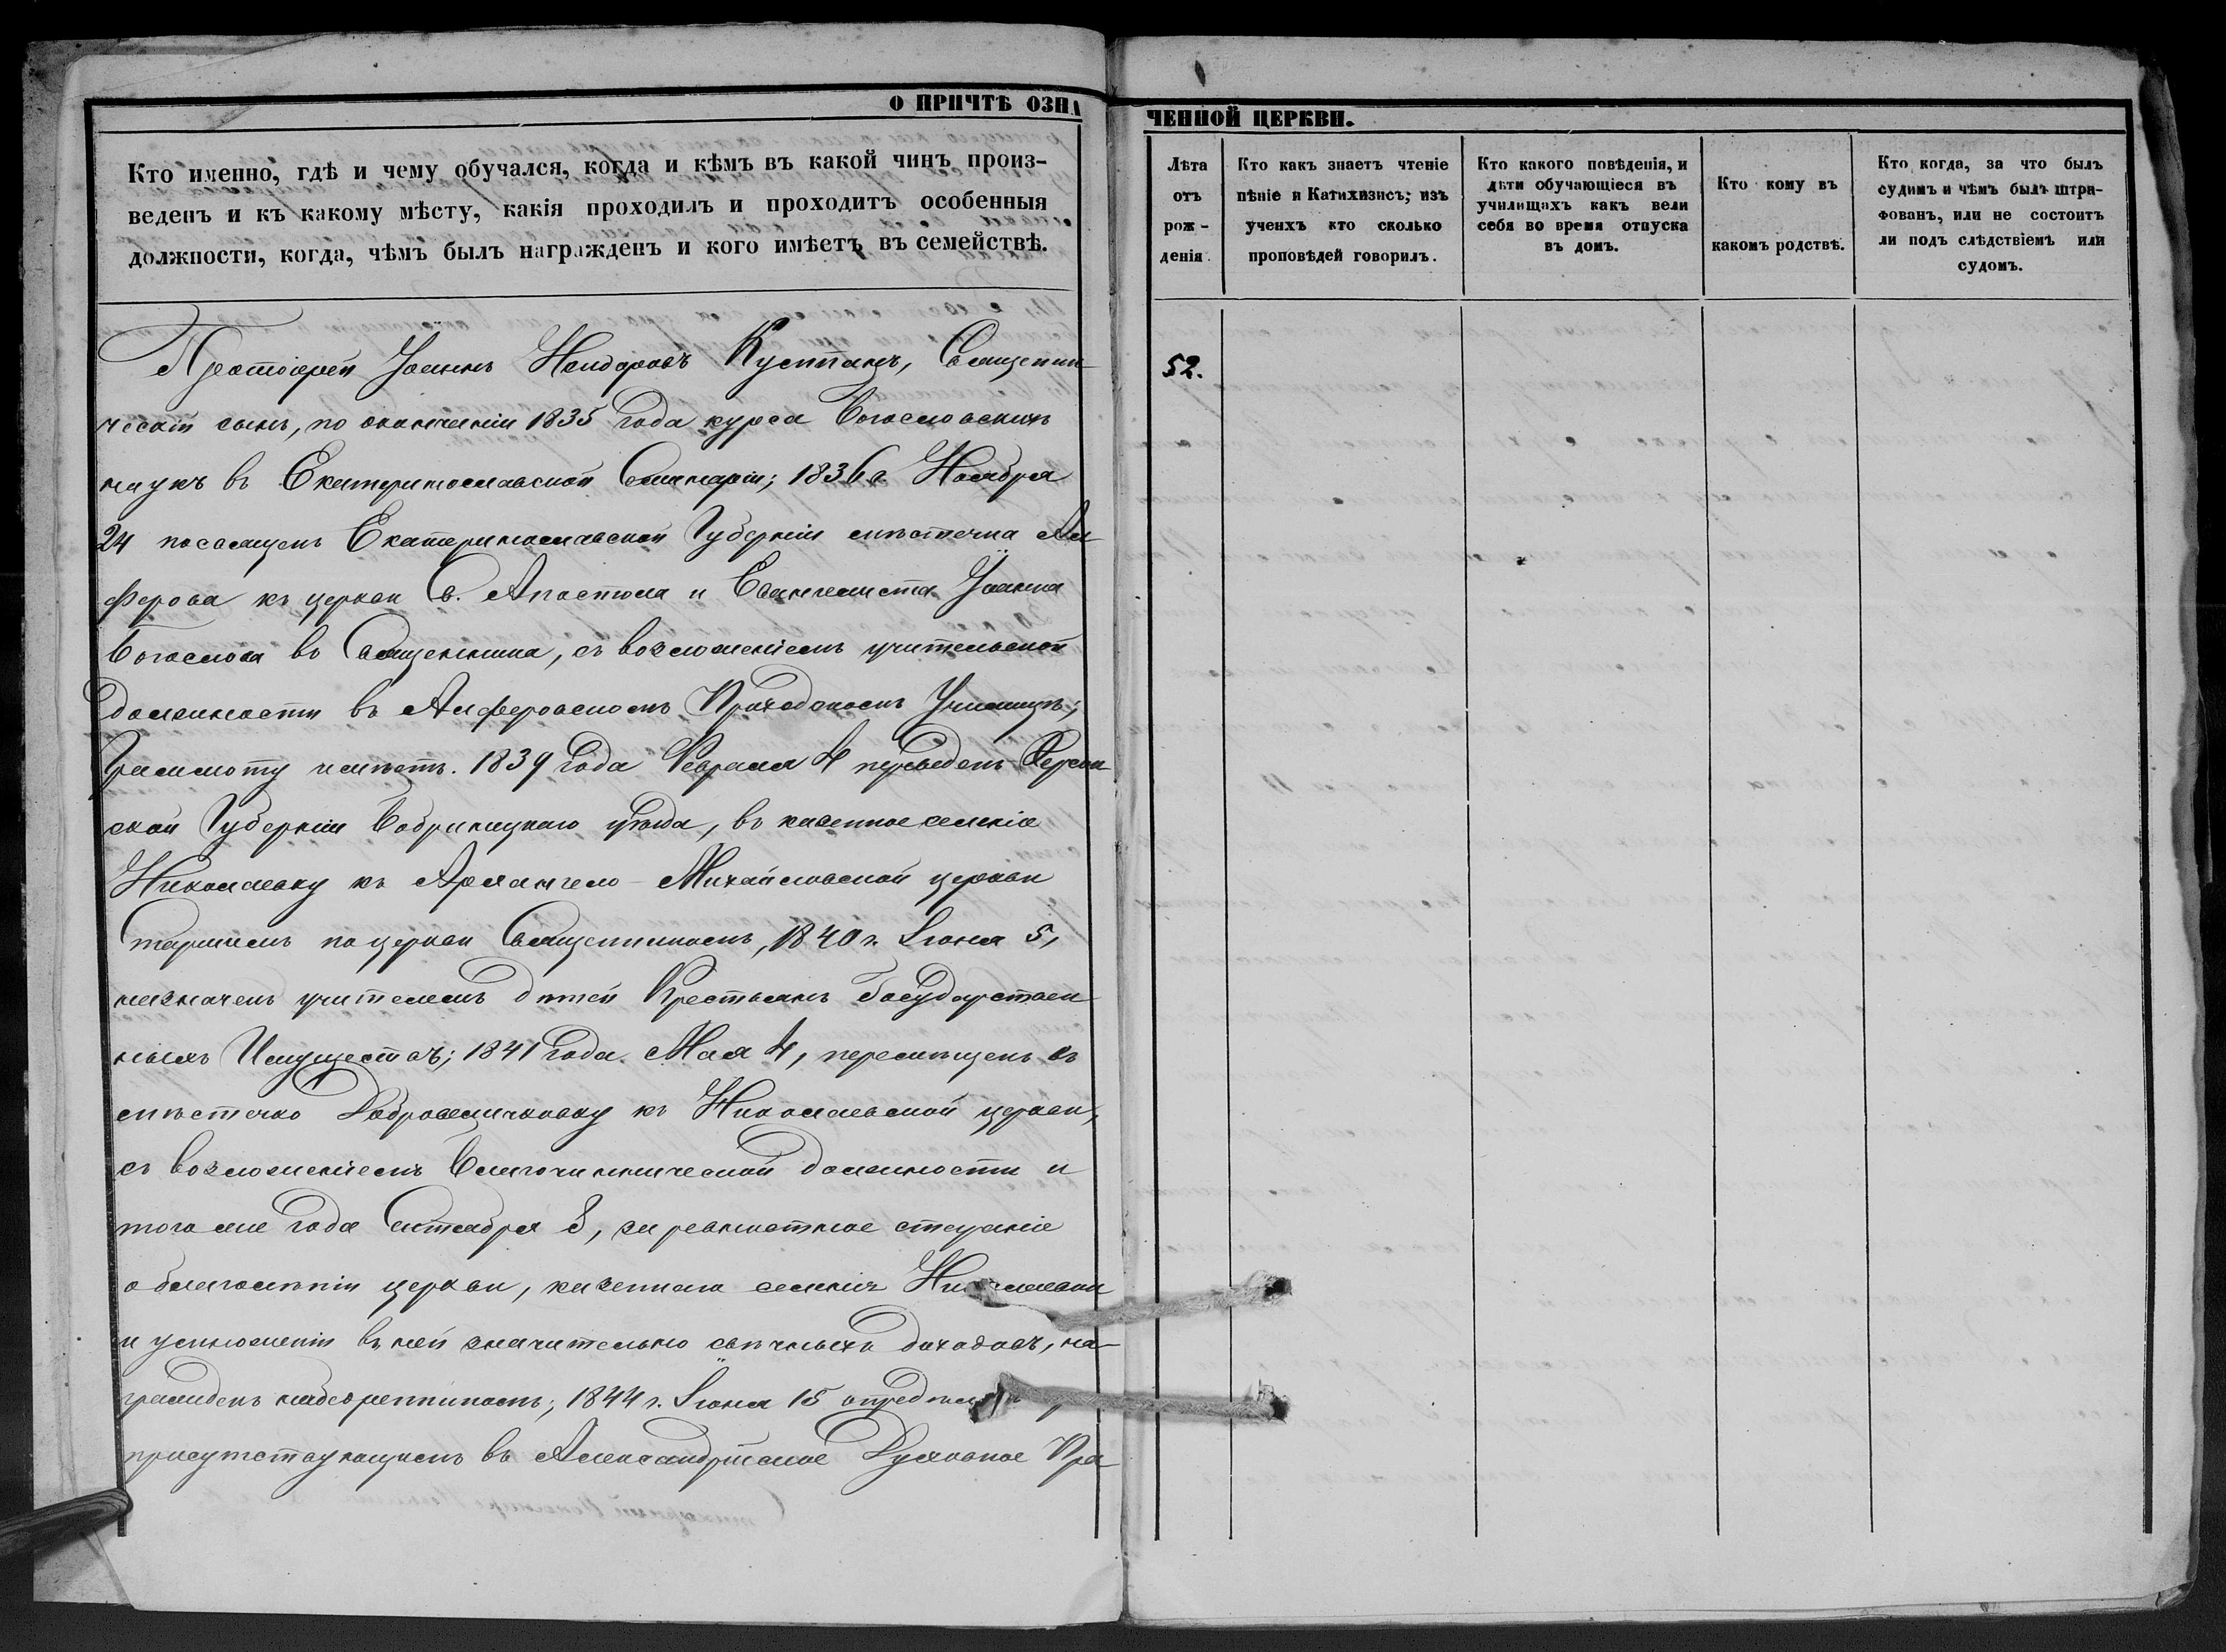 О ПРИЧТѢ ОЗНА
ЧЕННОЙ ЦЕРКВИ.
Кто именно, гдѣ и чему обучался, когда и кѣмъ въ какой чинъ произ-
веденъ и къ какому мѣсту, какія проходилъ и проходитъ особенныя
должности, когда, чѣмъ былъ награжденъ и кого имѣетъ въ семействѣ.
Протоіерей Іоаннъ Кустпанъ, Священни-
ческій сынъ, по окончаніи 1835 года курса Богословскихъ
наукъ въ Екатеринославской Семинаріи; 1836 г. Ноября
24 посвященъ Екатеринославской Губерніи мѣстечка Ал-
ферова къ церкви Св. Апостола и Евангелиста Іоанна
Богослова во Священника, съ возложеніемъ учительской
должности въ Алферовскомъ Приходскомъ Училищѣ;
Грамоту имѣетъ. 1839 года Февраля 4 переведенъ Херсон-
ской Губерніи Бобринецкаго уѣзда, въ казенное селеніе
Николаевку къ Архангело-Михайловской церкви
Старшимъ по церкви Священникомъ, 1840 г. Іюня 5,
назначенъ учителемъ дѣтей Крестьянъ Государствен-
ныхъ Имуществъ; 1841 года Мая 4, перемѣщенъ въ
мѣстечко Добровеличковку къ Николаевской церкви,
съ возложеніемъ Благочиннической должности и
того же года Октября 8, за ревностное стараніе
о благолѣпіи церкви, казеннаго селенія Николаевки
и умноженіи въ ней значительно свѣчныхъ доходовъ, на-
гражденъ набедренникомъ; 1844 г. Іюня 15 опредѣленъ
присутствующимъ въ Александрійское Духовное Пра-
Лѣта
отъ
рож-
денія.
Кто какъ знаетъ чтеніе
пѣніе и Катихизисъ; изъ
ученхъ кто сколько
проповѣдей говорилъ.
Кто какого повѣденія, и
дѣти обучающіеся въ
училищахъ какъ вели
себя во время отпуска
въ домъ.
Кто кому въ
какомъ родствѣ.
Кто когда, за что былъ
судимъ и чѣмъ былъ штра-
фованъ, или не состоитъ
ли подъ слѣдствіемъ или
судомъ.
52.